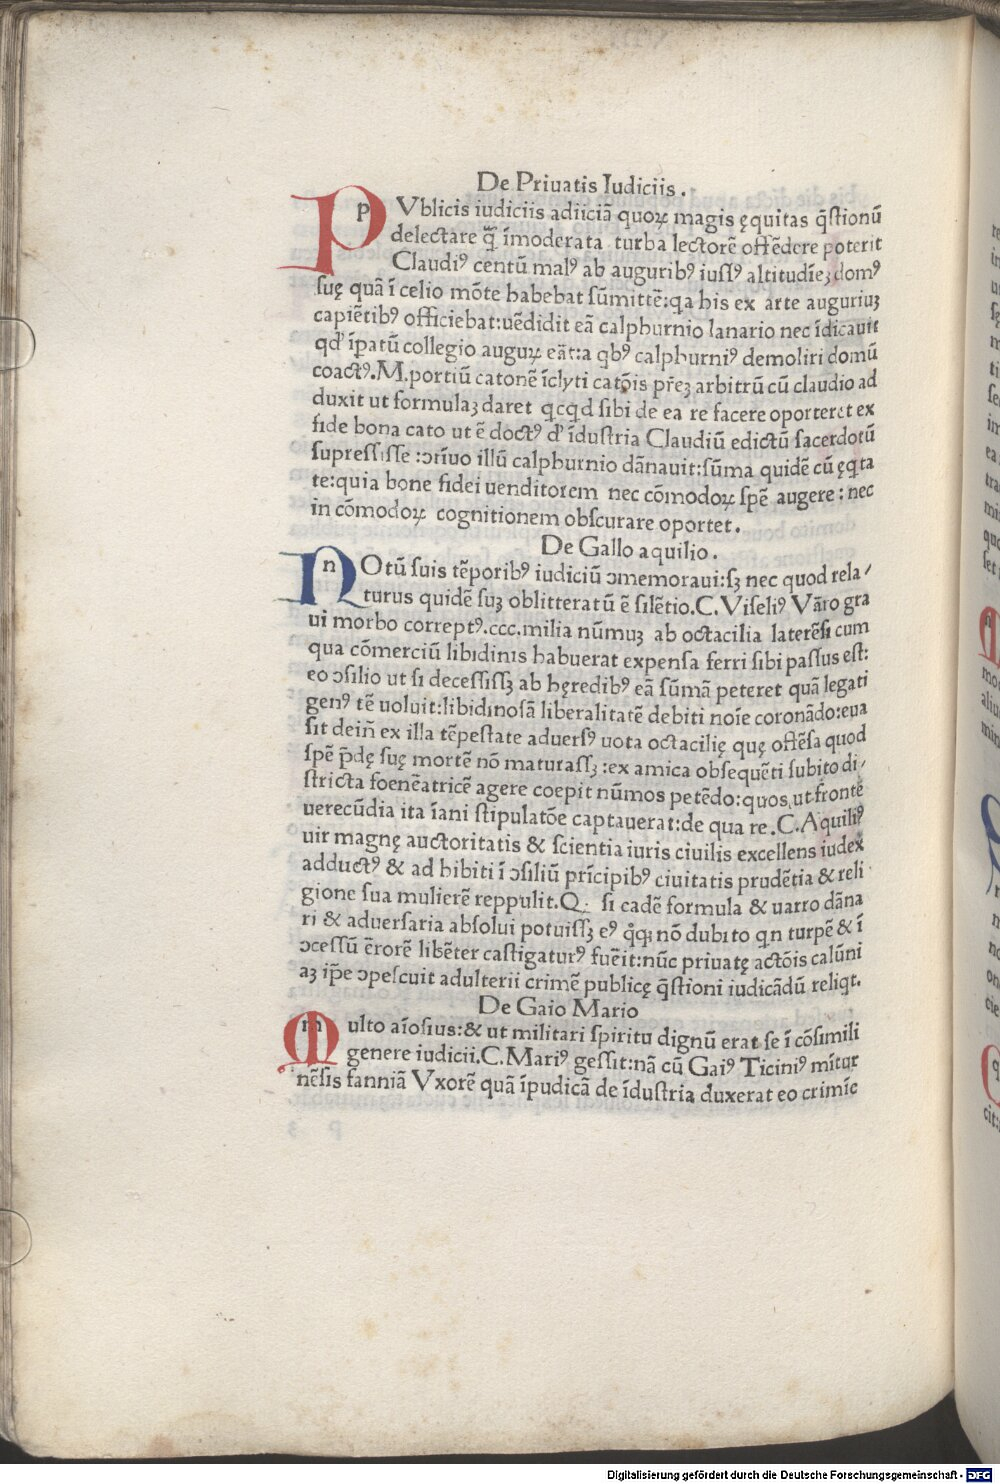 De Priuatis Iudiciis.
PVblicis iudiciis adiiciā quoꝝ magis ęquitas q̄stionū
delectare q̄̄ īmoderata turba lectorē offēdere poterit
Claudiꝰ centū malꝰ ab auguribꝰ iussꝰ altitudīeꝫ domꝰ
suę quā ī celio mōte habebat sūmittē: qa his ex arte auguriuꝫ
capiētibꝰ officiebat: uēdidit eā calphurnio lanario nec īdicauit
qd' īpatū collegio auguꝝ eāt: a qbꝰ calphurniꝰ demoliri domū
coactꝰ. M. portiū catonē īclyti catōis pr̄eꝫ arbitrū cū claudio ad
duxit ut formulaꝫ daret qcqd sibi de ea re facere oporteret ex
fide bona cato ut ē doctꝰ d' īdustria Claudiū edictū sacerdotū
supressisse: ɔtīuo illū calphurnio dānauit: sūma quidē cū ęqta
te: quia bone fidei uenditorem nec cōmodoꝝ spē augere: nec
in cōmodoꝝ cognitionem obscurare oportet.
De Gallo aquilio.
nOtū suis tēporibꝰ iudiciū ɔmemoraui: sꝫ nec quod rela/
turus quidē suꝫ oblitteratū ē silētio. C. Viseliꝰ Vāro gra
ui morbo correptꝰ. ccc. milia nūmuꝫ ab octacilia laterēsi cum
qua cōmerciū libidinis habuerat expensa ferri sibi passus est:
eo ɔsilio ut si decessissꝫ ab hęredibꝰ eā sūmā peteret quā legati
genꝰ tē uoluit: libidinosā liberalitatē debiti noīe coronādo: eua
sit dein̄ ex illa tēpestate aduersꝰ uota octacilię quę offēsa quod
spē p̄dę suę mortē nō maturassꝫ: ex amica obsequēti subito di/
stricta foenēatricē agere coepit nūmos petēdo: quos ut frontē
uerecūdia ita īani stipulatōe captauerat: de qua re. C. Aquiliꝰ
uir magnę auctoritatis & scientia iuris ciuilis excellens iudex
adductꝰ & ad hibiti ī ɔsiliū prīcipibꝰ ciuitatis prudētia & reli
gione sua mulierē reppulit. Q: si cadē formula & uarro dāna
ri & aduersaria absolui potuissꝫ eꝰ q̊qꝫ nō dubito qn turpē & ī
ɔcessū ērorē libēter castigaturꝰ fuēit: nūc priuatę actōis calūni
aꝫ ip̄e ɔpescuit adulterii crimē publicę q̄stioni iudicādū reliqt.
De Gaio Mario
multo aīosius: & ut militari spiritu dignū erat se ī cōsimili
genere iudicii. C. Mariꝰ gessit: nā cū Gaiꝰ Ticiniꝰ mītur
nēsis fanniā Vxorē quā īpudicā de īdustria duxerat eo crimīe
Digitalisierung gefördert durch die Deutsche Forschungsgemeinschaft - DFG